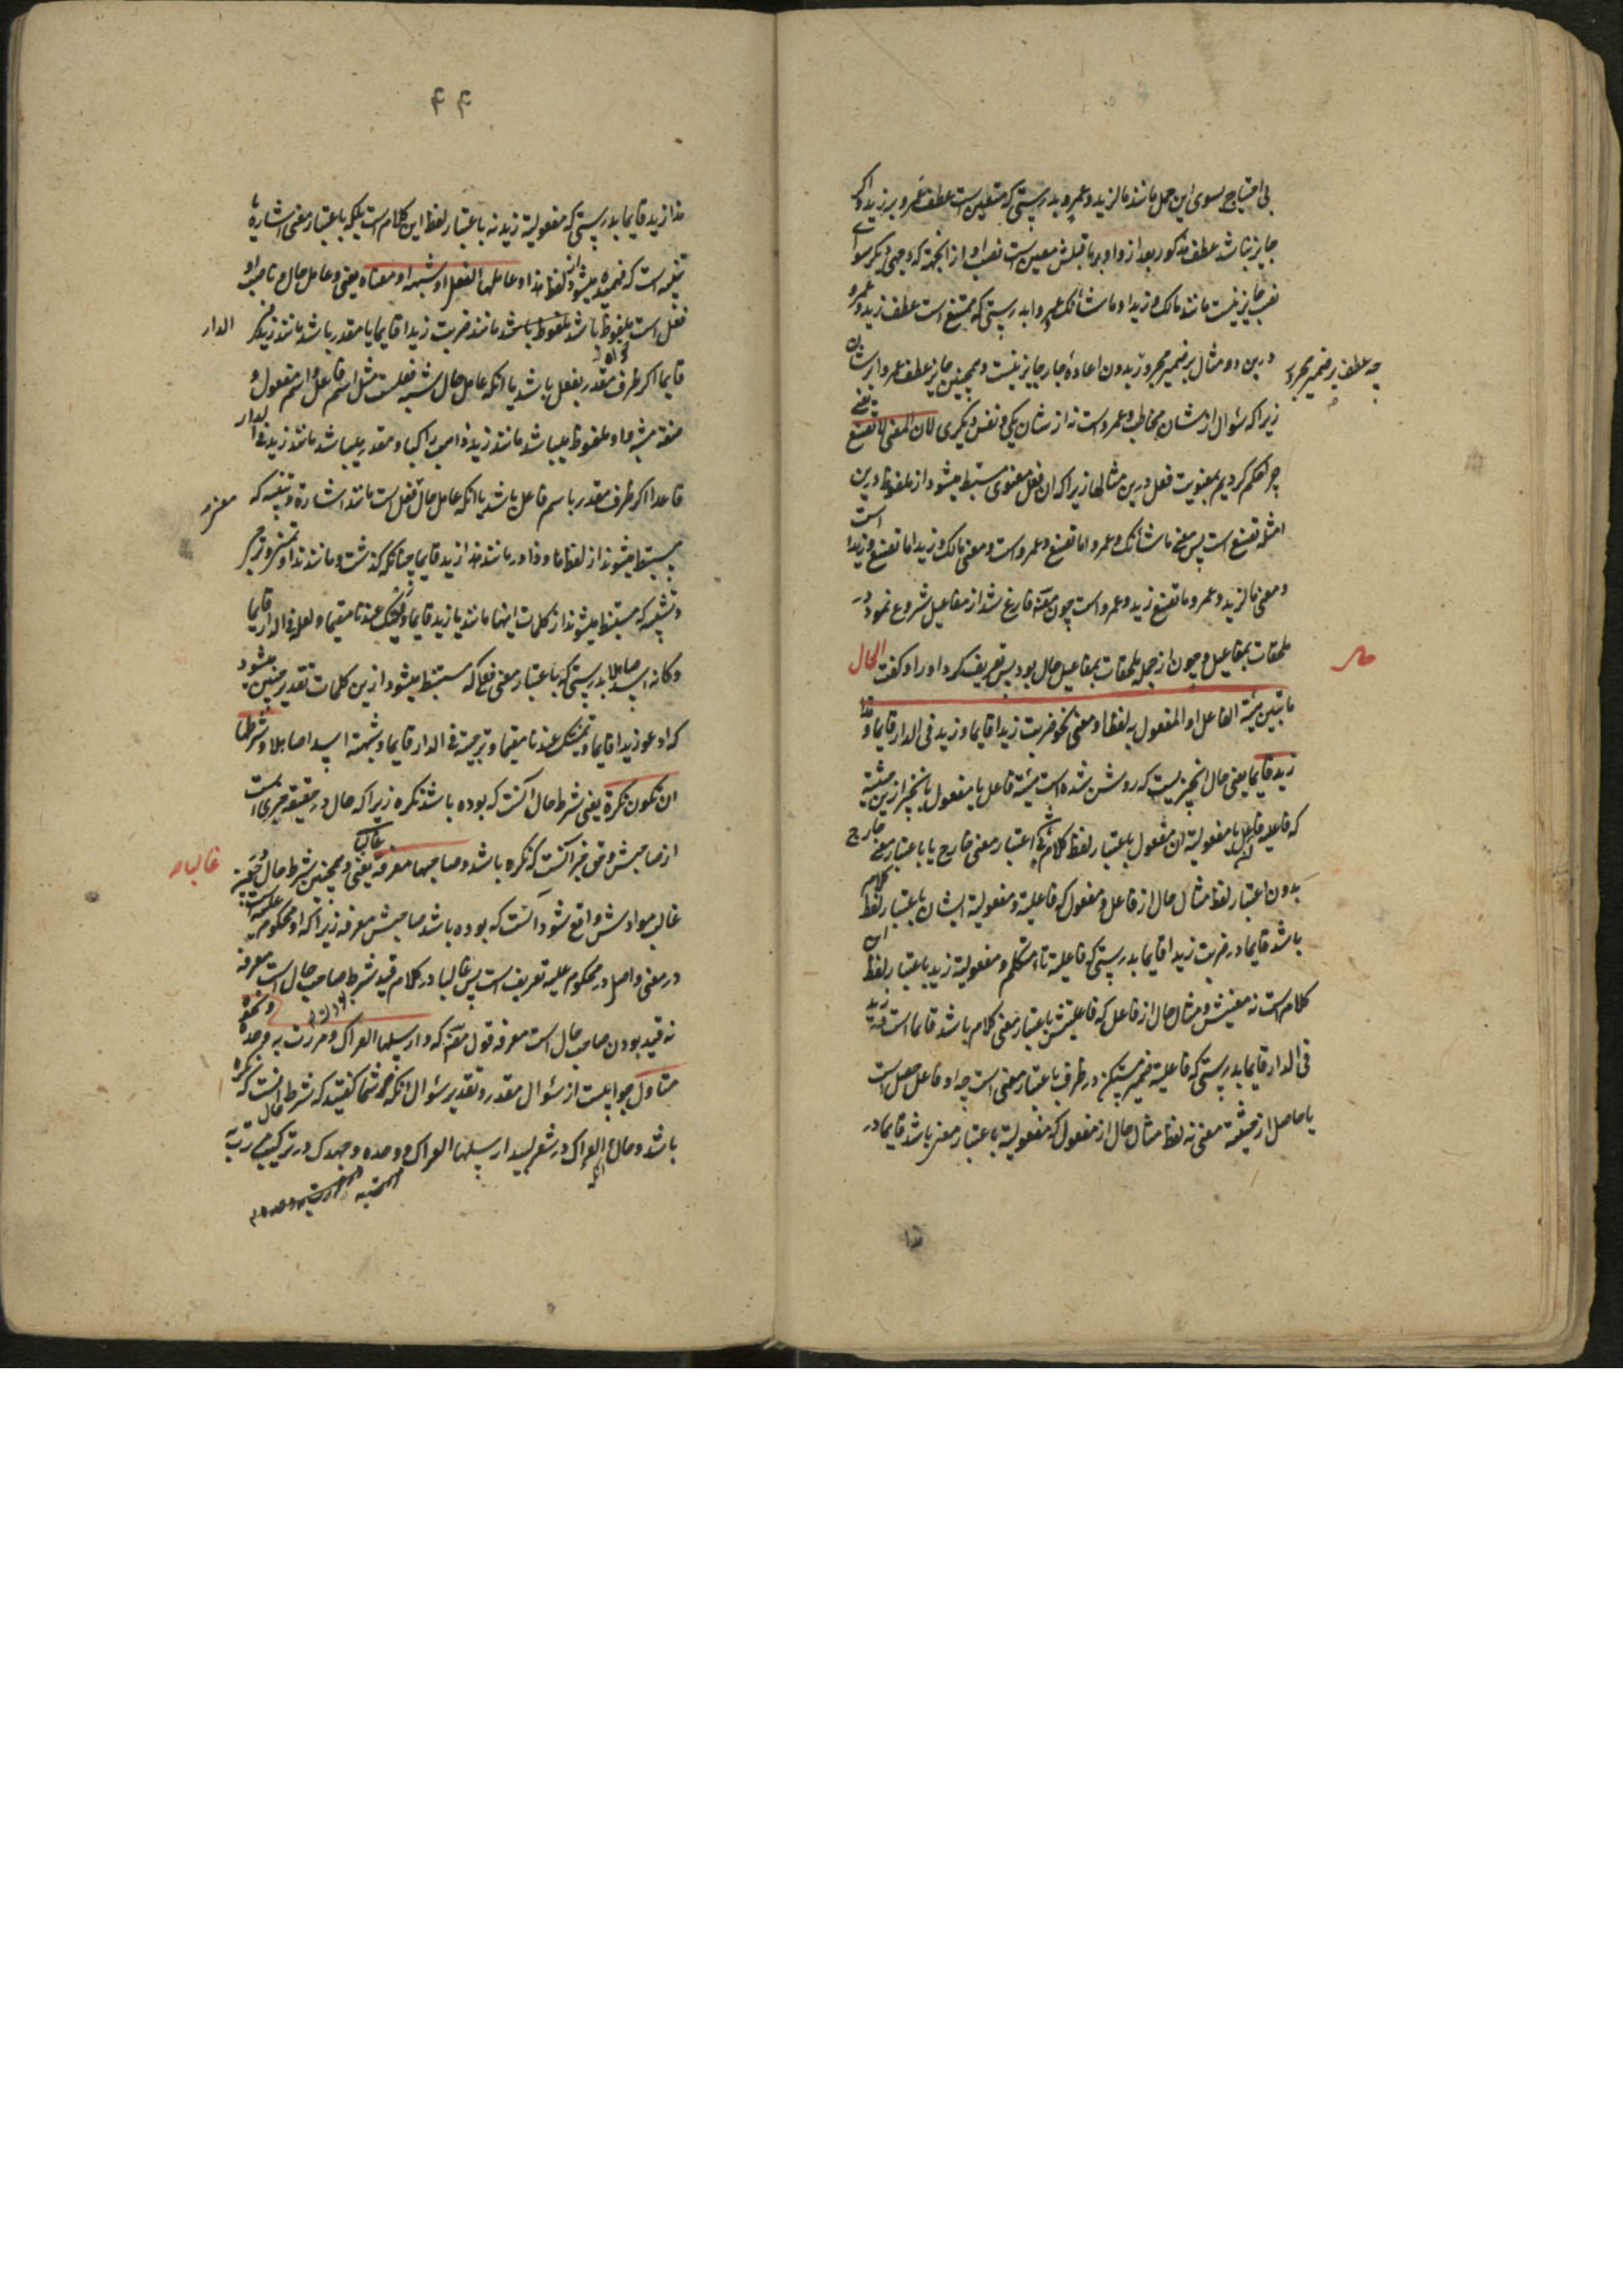 بی احتیاج بسوی این حمل مانند مالزید و عمرو بدرستی که متعین است عطف عمرو بر زید و اکر
جایز نباشد عطف مذکور بعد از واو بر ماقبلش معین است نصب او از انجهة که وجهی دیکر سوای
نصب جایز نیست مانند مالک و زیدا و ماشأنک و عمروا بدرستی که ممتنع است عطف زید و عمرو
درین دو مثال بر ضمیر مجرور بدون اعاده جار جایز نیست و همچنین جایز عطف عمرو بر شان
چه عطف بر ضمیر مجرور
زیرا که سئوال از شان مخاطب و عمرو است نه از شان یکی و نفس دیکری لان المعنی ما تصنع یعنی
چرا حکم کردیم بمعنویت فعل درین مثالها زیرا که ان فعل معنوی مستنبط میشود از ملفوظ درین
امثله تصنع است پس معنی ماشأنک و عمروا ما تصنع و عمروا است و معنی مالک و زیدا ما تصنع و زیدا است
و معنی مالزید و عمرو ما تصنع زید و عمرو است چون مصنف فارغ شد از مفاعیل شروع نمود در
ملحقات بمفاعیل و چون از جمله ملحقات بمفاعیل حال بود پس تعریف کرد او را و کفت الحال
حال
ما یبین هیئة الفاعل او المفعول به لفظا او معنی نحو ضربت زیدا قایما و زید فی الدار قایما و هذا
زید قایما یعنی حال انچیزیست که روشن شده است هیئة فاعل یا مفعول بانچیز ازین حیثیة
که فاعلیه فاعل یا مفعولیة ان مفعول باعتبار لفظ کلام باشد بی اعتبار معنی خارج یا باعتبار معنی خارج
بدون اعتبار لفظ مثال حال از فاعل و مفعول که فاعلیة و مفعولیة ایشان باعتبار لفظ کلام
باشد قایما در ضربت زیدا قایما بدرستی که فاعلیة تاء متکلم و مفعولیة زید باعتبار لفظ این
کلام است نه معنیش و مثال حال از فاعل که فاعلیتش باعتبار معنی کلام باشد قایما است در زید
فی الدار قایما بدرستی که فاعلیة ضمیر مستکن در ظرف باعتبار معنی است چه او فاعل حصل است
یا حاصل از حیثیة معنی نه لفظ مثال حال از مفعول که مفعولیة باعتبار معنی باشد قایما در
هذا
۴۴
هذا زید قایما بدرستی که مفعولیة زید نه باعتبار لفظ این کلام است بلکه باعتبار معنی اشاره یا
تنبیه است که فهمیده میشود از لفظ هذا و عاملها الفعل او شبهه او معناه یعنی و عامل حال و ناصب او
فعل است ملفوظ باشد مانند ضربت زیدا قایما یا مقدر باشد مانند زید فی الدار
قایما اکر ظرف مقدر بفعل باشد یا انکه عامل حال شبه فعلست مثل اسم فاعل و اسم مفعول و
صفة مشبهه و او ملفوظ میباشد مانند زید ذاهب راکبا و مقدر میباشد مانند زید فی الدار
قاعدا اکر ظرف مقدر باسم فاعل باشد یا انکه عامل حال معنی فعل است مانند اشارة و تنبیه که
مستنبط میشوند از لفظ ها و ذا در مانند هذا زید قایما چنانکه کذشت و مانند ندا و تمنی و ترجی
و تشبیه که مستنبط میشوند از کلمات اینها مانند یا زید قایما و لیتک عندنا مقیما و لعله فی الدار قایما
و کانه اسد صایلا بدرستی که باعتبار معنی فعل که مستنبط میشود ازین کلمات تقدیر چنین میشود
که ادعو زیدا قایما و تمنیتک عندنا مقیما و ترجیته فی الدار قایما و شبهته اسدا صایلا و شرطها
ان تکون نکرة یعنی شرط حال انست که بوده باشد نکره زیرا که حال در حقیقة خبری است
از صاحبش و حق خبر انست که نکره باشد و صاحبها معرفة غالبا یعنی و همچنین شرط حال
غالبا
غالب موادش واقع شود انست که بوده باشد صاحبش معرفه زیرا که او محکوم علیه است
در معنی و اصل در محکوم علیه تعریف است پس غالبا در کلام قید شرط صاحب حال است معرفه
نه قید بودن صاحب حال است معرفه قول مصنف که و ارسلها العراک و مررت به وحده و نحوه
متاول جوابیست از سئوال مقدر و تقدیر سئوال انکه شما کفتید که شرط حال انست که نکره
باشد و حال انکه العراک در شعر لبید ارسلها العراک و وحده و جهدک در ترکیب مررت به